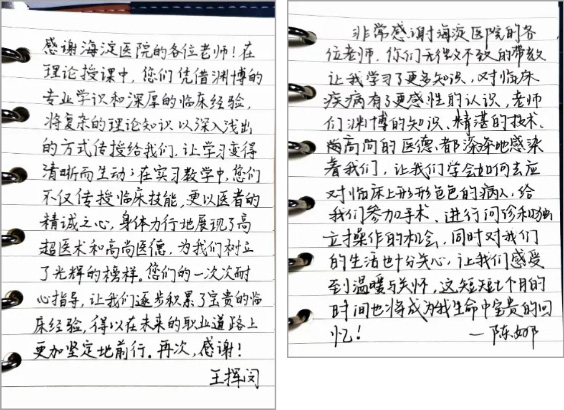 感谢海淀医院的各位老师！在
理论授课中，您们凭借渊博的
专业学识和深厚的临床经验，
将复杂的理论知识以深入浅出
的方式传授给我们，让学习变得
清晰而生动；在实习教学中，您们
不仅传授临床技能，更以医者的
精诚之心，身体力行地展现了高
超医术和高尚医德，为我们树立
了光辉的榜样。您们的一次次耐
心指导，让我们逐步积累了宝贵的临
床经验，得以在未来的职业道路上
更加坚定地前行。再次，感谢！
王挥闵
非常感谢海淀医院的各
位老师，你们无微不致的带教
让我学习了更多知识，对临床
疾病有了更感性的认识，老师
们渊博的知识、精湛的技术、
高尚的医德都深深地感染
着我们，让我们学会如何去应
对临床上形形色色的病人，给
我们参加手术、进行问诊和独
立操作的机会，同时对我们
的生活也十分关心，让我们感受
到温暖与关怀，这短短1个月的
时间也将成为我生命中宝贵的回
忆！ —陈娜